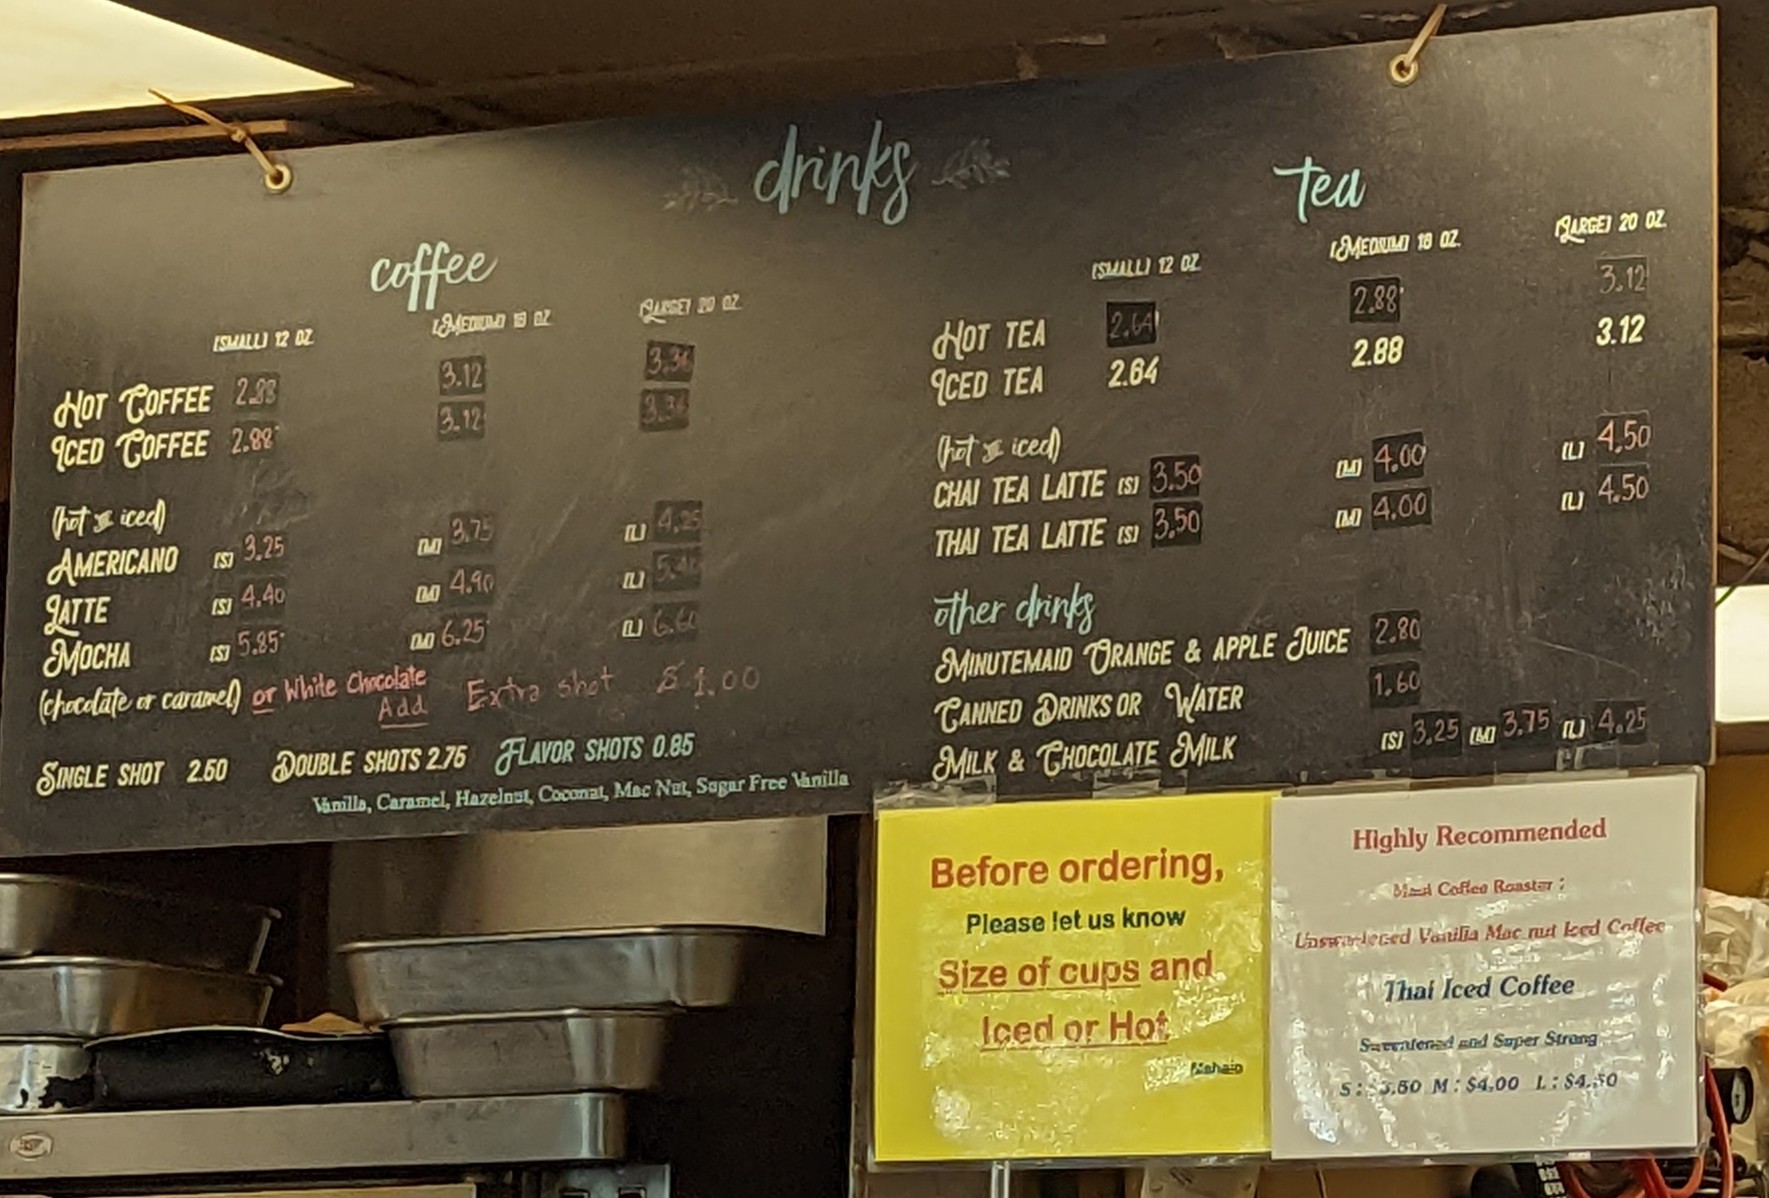 drinks
coffee
(SMALL) 12 OZ. (MEDIUM) 16 OZ. (LARGE) 20 OZ.
HOT COFFEE 2.88 3.12 3.36
ICED COFFEE 2.88 3.12 3.36
(hot or iced)
AMERICANO (S) 3.25 (M) 3.75 (L) 4.25
LATTE (S) 4.40 (M) 4.90 (L)
MOCHA (S) 5.85 (M) 6.25 (L)
(chocolate or caramel) or White Chocolate
Add Extra shot $1.00
SINGLE SHOT 2.50 DOUBLE SHOTS 2.75 FLAVOR SHOTS 0.85
Vanilla, Caramel, Hazelnut, Coconut, Mac Nut, Sugar Free Vanilla
tea
(SMALL) 12 OZ. (MEDIUM) 16 OZ. (LARGE) 20 OZ.
HOT TEA 2.64 2.88 3.12
ICED TEA 2.64 2.88 3.12
(hot or iced)
CHAI TEA LATTE (S) 3.50 (M) 4.00 (L) 4.50
THAI TEA LATTE (S) 3.50 (M) 4.00 (L) 4.50
other drinks
MINUTEMAID ORANGE & APPLE JUICE 2.80
CANNED DRINKS OR WATER 1.60
MILK & CHOCOLATE MILK (S) 3.25 (M) 3.75 (L) 4.25
Before ordering,
Please let us know
Size of cups and
Iced or Hot
Highly Recommended
Maui Coffee Roaster :
Unsweetened Vanilla Mac nut Iced Coffee
Thai Iced Coffee
Sweetened and Super Strong
S : 3.50 M : $4.00 L : $4.50